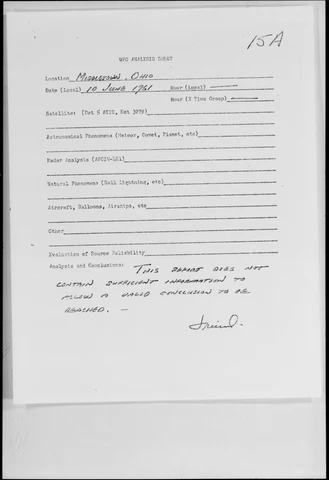 15A
UFO ANALYSIS SHEET
Location Middletown, Ohio
Date (Local) 10 June 1961 Hour (Local)
Hour (Z Time Group)
Satellite: (Det 5 ATIC, Ext 3279)
Astronomical Phenomena (Meteor, Comet, Planet, etc)
Radar Analysis (AFCIN-4E1)
Natural Phenomena (Ball Lightning, etc)
Aircraft, Balloons, Airships, etc
Other
Evaluation of Source Reliability
Analysis and Conclusions: THIS REPORT DOES NOT
CONTAIN SUFFICIENT INFORMATION TO
ALLOW A VALID CONCLUSION TO BE
REACHED. —